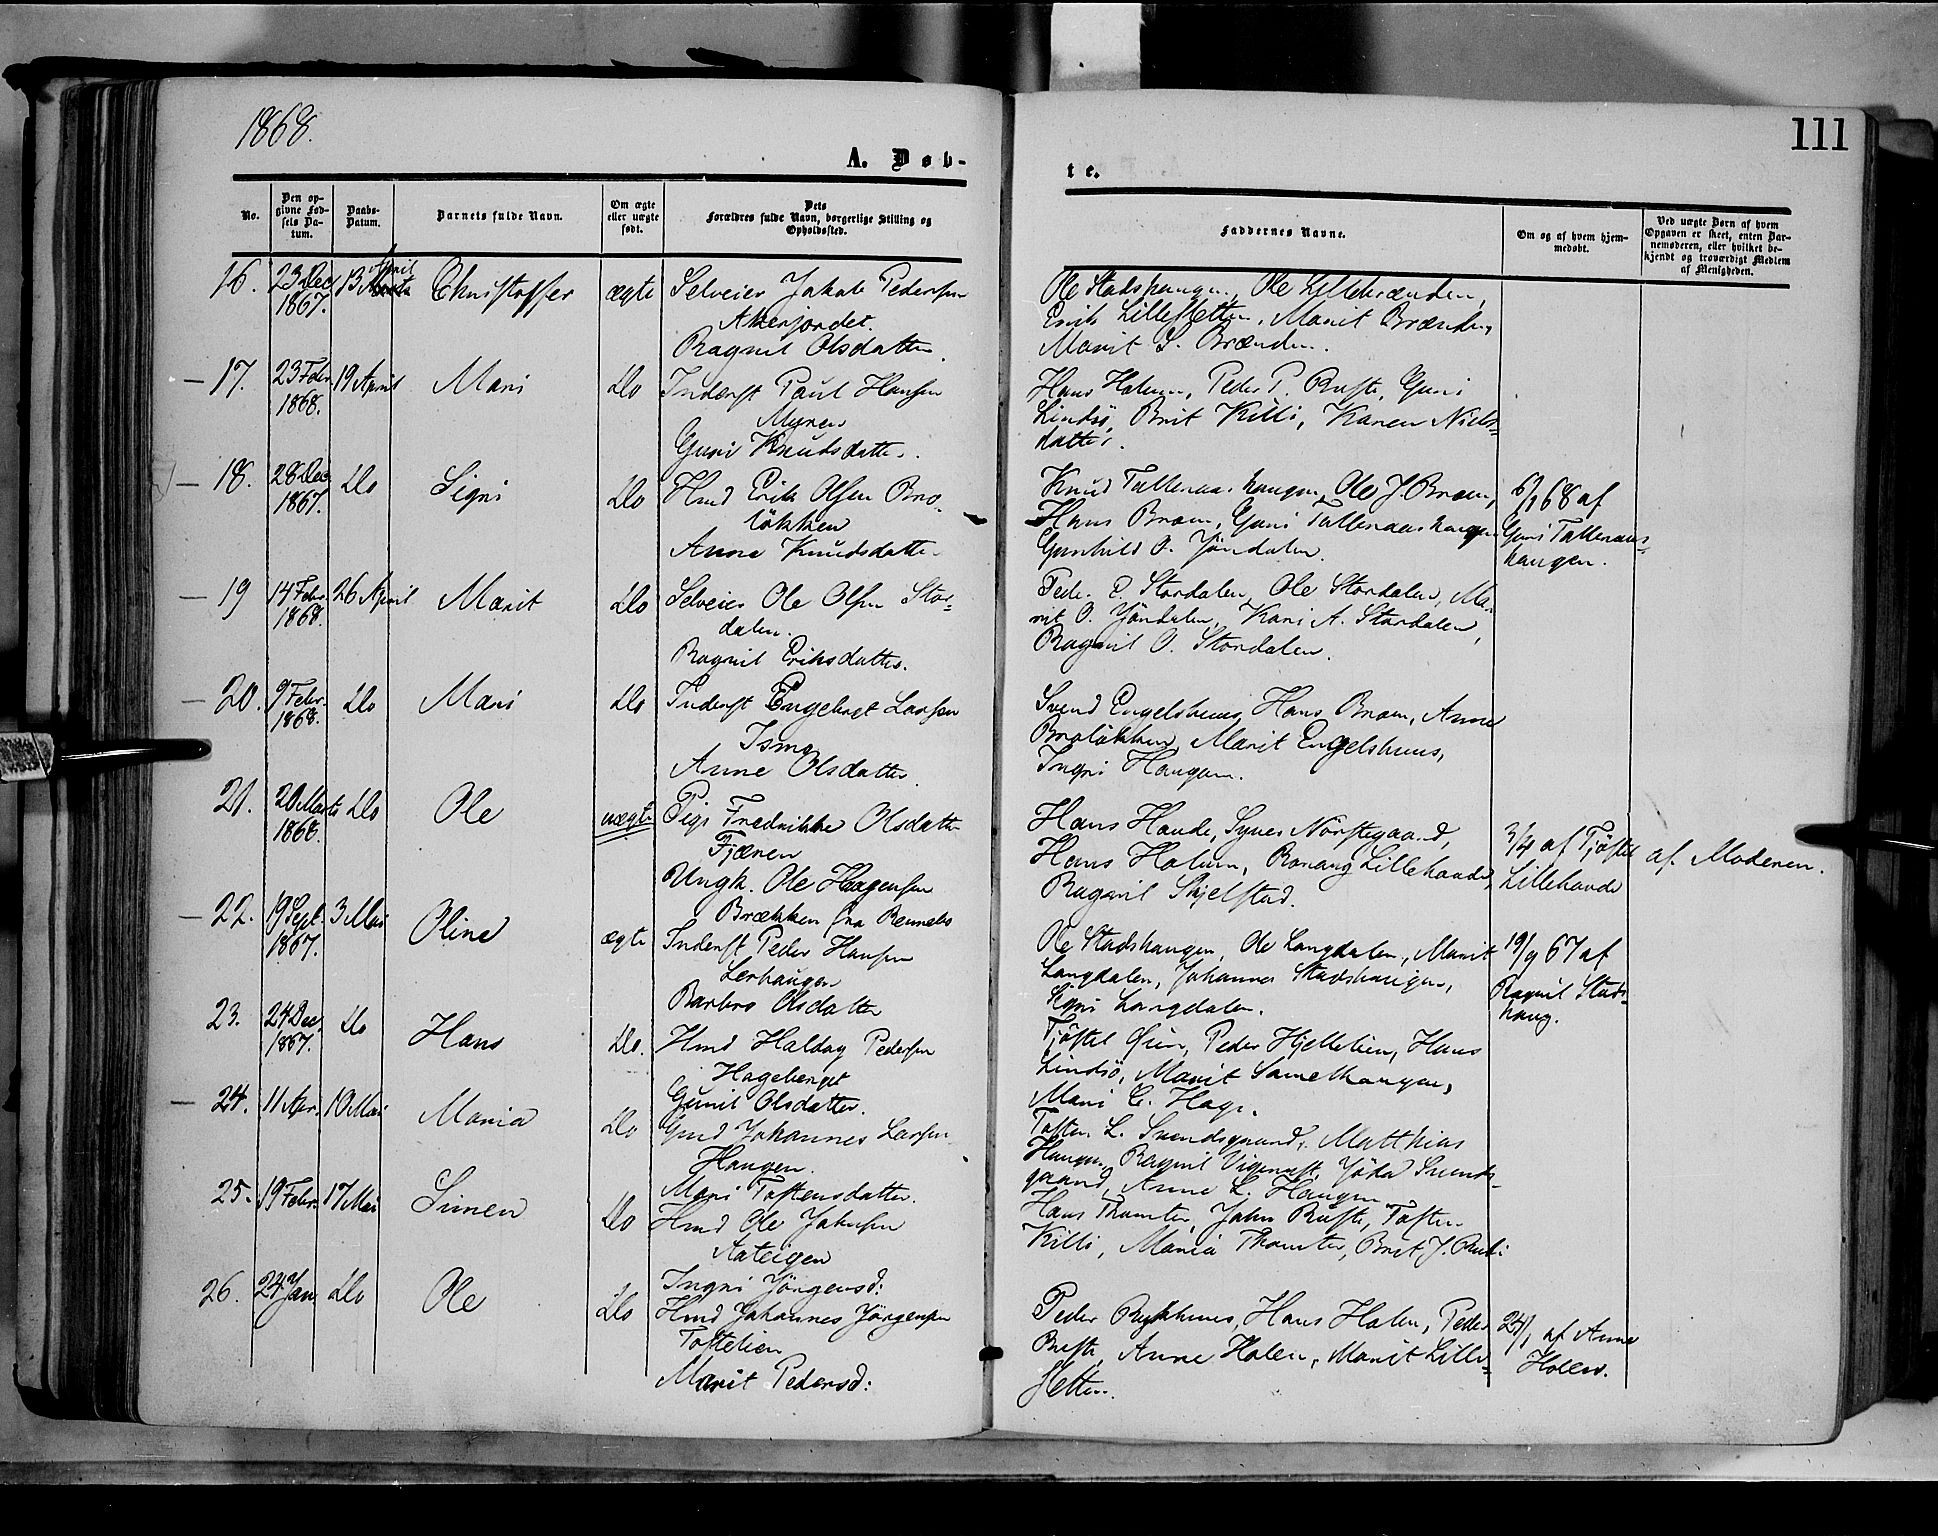 1868.
111
A. Døb-
te.
No.
Den op-
givne Fød-
sels Da-
tum.
Daabs-
Datum.
Barnets fulde Navn.
Om ægte
eller uægte
født.
Dets
Forældres fulde Navn, borgerlige Stilling og
Opholdssted.
Faddernes Navne.
Om og af hvem hjem-
medøbt.
Ved uægte Børn af hvem
Opgaven er skeet, enten Bar-
nemoderen, eller hvilket be-
kjendt og troværdigt Medlem
af Menigheden.
16. 23 Dec 1867. 13 April Christoffer ægte Selveier Jakob Pedersen
Akerjordet.
Ragnil Olsdatter.
Ole Stadshaugen, Ole Lillebrænden,
Erik Lillesletten, Marit Brænden,
Marit S. Brænden.
17. 23 Febr. 1868. 19 April Mari Do Inderst Paul Hansen
Myren
Guri Knudsdatter.
Hans Holum, Peder P. Buste, Guri
Lindsö, Brit Killi, Karen Niels-
datter.
18. 28 Dec 1867. Do Signi Do Hmd Erik Olsen Bro-
løkken
Anne Knudsdatter
Knud Talleraashaugen, Ole J. Broen,
Hans Broen, Guri Talleraashaugen
Gunhild O. Jöndalen.
6/1 68 af
Guri Talleraas-
haugen.
19 14 Febr. 1868. 26 April Marit Do Selveier Ole Olsen Stor-
dalen.
Ragnil Eriksdatter.
Peder P. Stordalen, Ole Stordalen, Ma-
rit O. Jöndalen, Kari A. Stordalen,
Ragnil O. Stordalen.
20. 9 Febr. 1868. Do Mari Do Inderst Engebret Larsen
Ismo
Anne Olsdatter
Svend Engelshuus, Hans Broen, Anne
Broløkken, Marit Engelshuus,
Ingri Haugen.
21. 20 Marts 1868. Do Ole uægte Pige Fredrikke Olsdatter
Fjæren
Ungk. Ole Haagensen
Brækken fra Rennebo
Hans Haude, Synes Nörstegaard,
Hans Holum, Ronnaug Lillehaude,
Ragnil Skjelstad.
3/4 af Tjøstel
Lillehaude
af Moderen.
22. 19 Sept. 1867. 3 Mai Oline ægte Inderst Peder Hansen
Lerhaugen
Barbro Olsdatter
Ole Stadshaugen, Ole Langdalen, Marit
Langdalen, Johannes Stadshaugen,
Signi Langdalen.
19/9 67 af
Ragnil Stads-
haug.
23. 24 Dec. 1867. Do Hans Do. Hmd Haldog Pedersen
Hageberget
Gunil Olsdatter.
Tjöstel Öien, Peder Hjellelien, Hans
Lindsö, Marit Lonethaugen,
Mari E. Hage.
24. 11 Apr. 10 Mai Maria Do Gmd Johannes Larsen
Haugen.
Mari Tostensdatter.
Tosten L. Svendsgaard, Matthias
Haugen, Ragnil Vigenest, Jöda Svends-
gaard, Anne L. Haugen
25. 19 Febr. 17 Mai Simen Do Hmd Ole Jakobsen
Aateigen
Ingri Jörgensd:
Hans Thomter, John Buste, Tosten
Killi, Maria Thomter, Brit J. Buste
26. 24 Jan Do Ole Do Hmd Johannes Jörgensen
Toftelien
Marit Pedersd:
Peder Rykhuus, Hans Holen, Peder
Buste, Anne Holen, Marit Lille-
sletten.
24/1 af Anne
Holen.